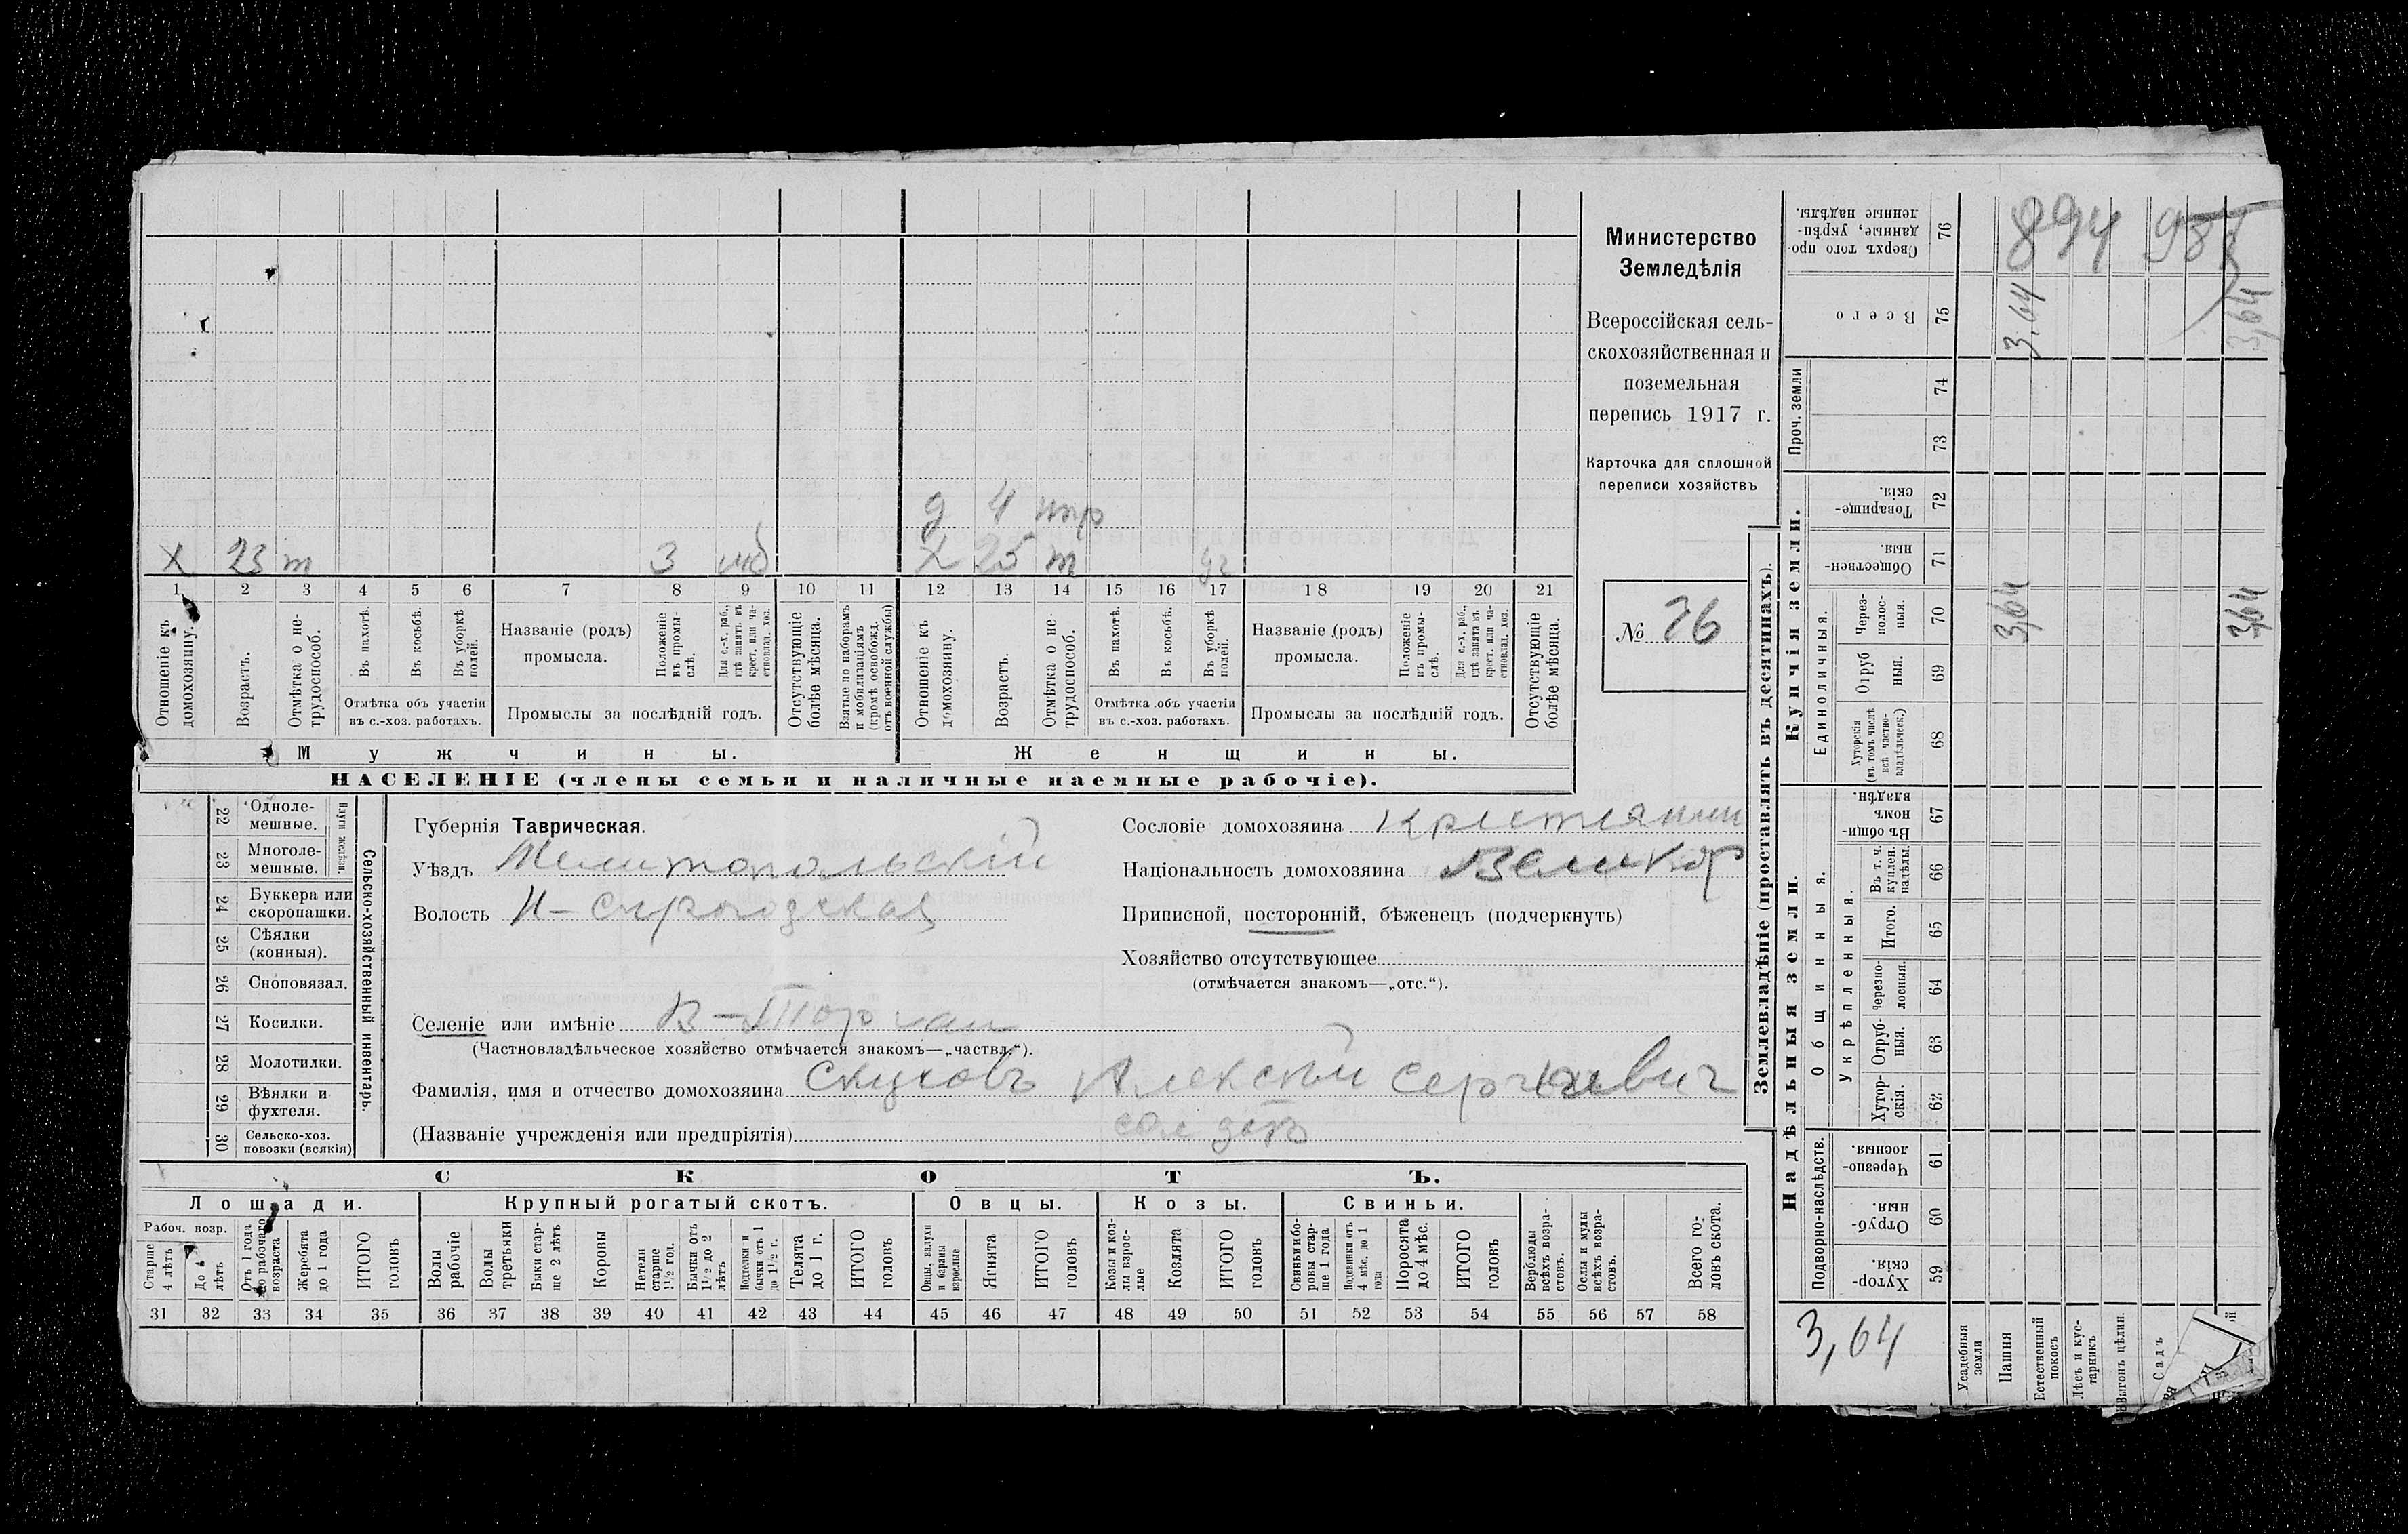 894 98
Министерство
Земледѣлія
Всероссійская сель-
скохозяйственная и
поземельная
перепись 1917 г.
Карточка для сплошной
переписи хозяйствъ
№ 76
д 4 нтр
х 23 т 3 х 25 т
1 2 3 4 5 6 7 8 9 10 11 12 13 14 15 16 17 18 19 20 21
Отношеніе къ домохозяину.
Возрастъ.
Отмѣтка о не-трудоспособ.
Въ пахотѣ.
Въ косьбѣ.
Въ уборкѣ полей.
Отмѣтка объ участіи
въ с.-хоз. работахъ.
Названіе (родъ)
промысла.
Положеніе въ промы-слѣ.
Для с.-х. раб., гдѣ занятъ въ крест. или ча-стновлад. хоз.
Промыслы за послѣдній годъ.
Отсутствующіе болѣе мѣсяца.
Взятые по наборамъ и мобилизаціямъ (кромѣ освобожд. отъ военной службы)
Отношеніе къ домохозяину.
Возрастъ.
Отмѣтка о не-трудоспособ.
Въ пахотѣ.
Въ косьбѣ.
Въ уборкѣ полей.
Отмѣтка объ участіи
въ с.-хоз. работахъ.
Названіе (родъ)
промысла.
Положеніе въ промы-слѣ.
Для с.-х. раб., гдѣ занята въ крест. или ча-стновлад. хоз.
Промыслы за послѣдній годъ.
Отсутствующіе болѣе мѣсяца.
Мужчины. Женщины.
НАСЕЛЕНІЕ (члены семьи и наличные наемные рабочіе).
Сельско-хозяйственный инвентарь.
Плуги желѣзн.
22 Одноле-мешные.
23 Многоле-мешные.
24 Буккера или скоропашки.
25 Сѣялки (конныя).
26 Сноповязал.
27 Косилки.
28 Молотилки.
29 Вѣялки и фухтеля.
30 Сельско-хоз. повозки (всякія)
Губернія Таврическая.
Уѣздъ Мелитопольскій
Волость Н-Сирогозская
Селеніе или имѣніе В-Торгаи
(Частновладѣльческое хозяйство отмѣчается знакомъ—„частвл.“).
Фамилія, имя и отчество домохозяина Скуховъ Алексѣй Сергѣевич
(Названіе учрежденія или предпріятія) солдатъ
Сословіе домохозяина крестянин
Національность домохозяина Великор
Приписной, посторонній, бѣженецъ (подчеркнуть)
Хозяйство отсутствующее
(отмѣчается знакомъ—„отс.“).
СКОТЪ.
Лошади. Крупный рогатый скотъ. Овцы. Козы. Свиньи.
Рабоч. возр.
Старше 4 лѣтъ
До 4 лѣтъ
Отъ 1 года до рабочаго возраста
Жеребята до 1 года
ИТОГО головъ
Волы рабочіе
Волы третьяки
Быки стар-ше 2 лѣтъ
Коровы
Нетели старше 1½ год.
Бычки отъ 1½ до 2 лѣтъ
Нетелки и бычки отъ 1 до 1½ г.
Телята до 1 г.
ИТОГО головъ
Овцы, валухи и бараны взрослые
Ягнята
ИТОГО головъ
Козы и коз-лы взрос-лые
Козлята
ИТОГО головъ
Свиньи и бо-ровы стар-ше 1 года
Подсвинки отъ 4 мѣс. до 1 года
Поросята до 4 мѣс.
ИТОГО головъ
Верблюды всѣхъ возра-стовъ.
Ослы и мулы всѣхъ возра-стовъ.
Всего го-ловъ скота.
31 32 33 34 35 36 37 38 39 40 41 42 43 44 45 46 47 48 49 50 51 52 53 54 55 56 57 58
Землевладѣніе (проставлять въ десятинахъ).
Надѣльныя земли.
Подворно-наслѣдств.
Хутор-скія. 59
Отруб-ныя. 60
Черезпо-лосныя. 61
Общинныя.
Укрѣпленныя.
Хутор-скія. 62
Отруб-ныя. 63
Черезпо-лосныя. 64
Итого. 65
Въ т. ч. куплен. надѣлы. 66
Въ общи-номъ владѣн. 67
Купчія земли.
Единоличныя.
Хуторскія (въ томъ числѣ всѣ частно-владѣльческ.) 68
Отруб ныя. 69
Через-полос-ныя. 70 3,64 3,64
Обществен-ныя. 71
Товарище-скія. 72
Проч. земли
73 74
Всего 75 3.64 3,64
Сверхъ того про-данные, укрѣп-ленные надѣлы. 76
3,64
Усадебныя земли
Пашня
Естественный покосъ
Лѣсъ и кус-тарникъ
Выгонъ цѣлин.
Садъ